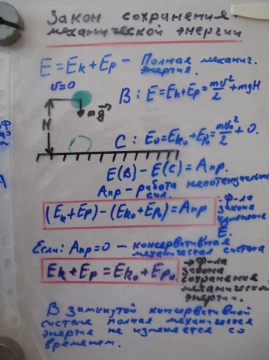 Закон сохранения
механической энергии
E = Ek + Ep – Полная механич.
энергия.
υ=0
B: E = Ek + Ep = mυ²/2 + mgH
mg
H
C: E₀ = Ek₀ + Ep₀ = mυ₀²/2 + 0.
E(B) – E(C) = Aпр.
Aпр – работа непотенциальн.
сил.
(Ek + Ep) – (Ek₀ + Ep₀) = Aпр
Ф-ла
закона
изменения
E.
Если: Aпр = 0 – консервативная
механическая система
Ek + Ep = Ek₀ + Ep₀
Ф-ла
закона
сохранения
механической
энергии.
В замкнутой консервативной
системе полная механическая
энергия не изменяется со
временем.